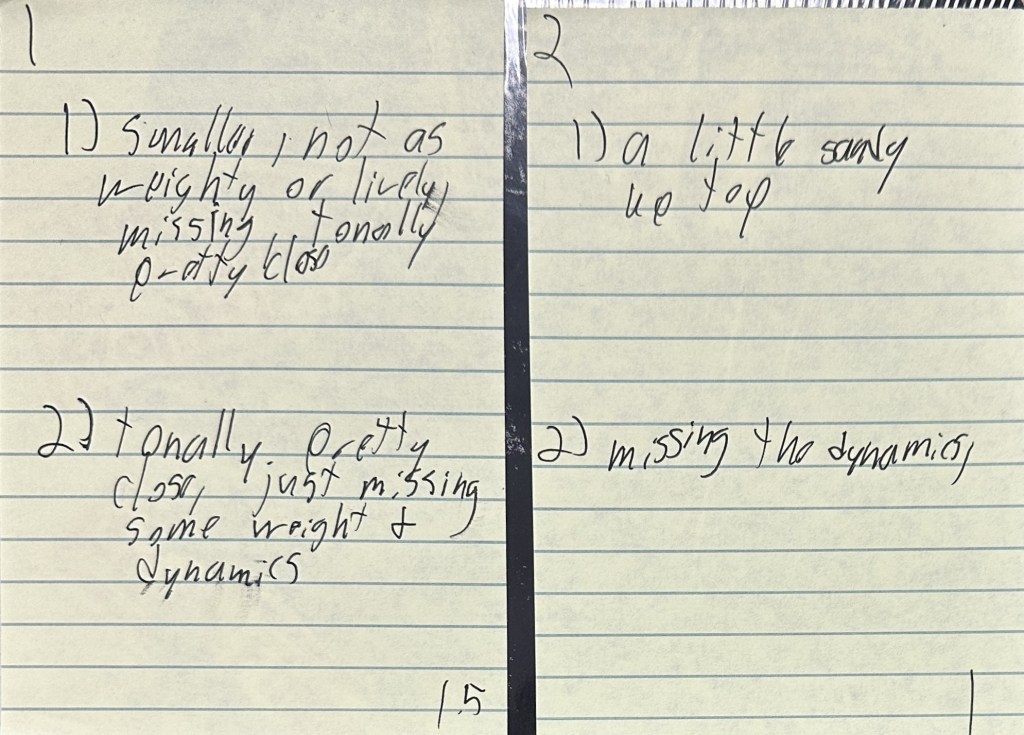 1
1) Smaller, not as
weighty or lively
missing, tonally
pretty close
2) tonally pretty
close, just missing
some weight &
dynamics
1.5
2
1) a little sandy
up top
2) missing the dynamics,
1